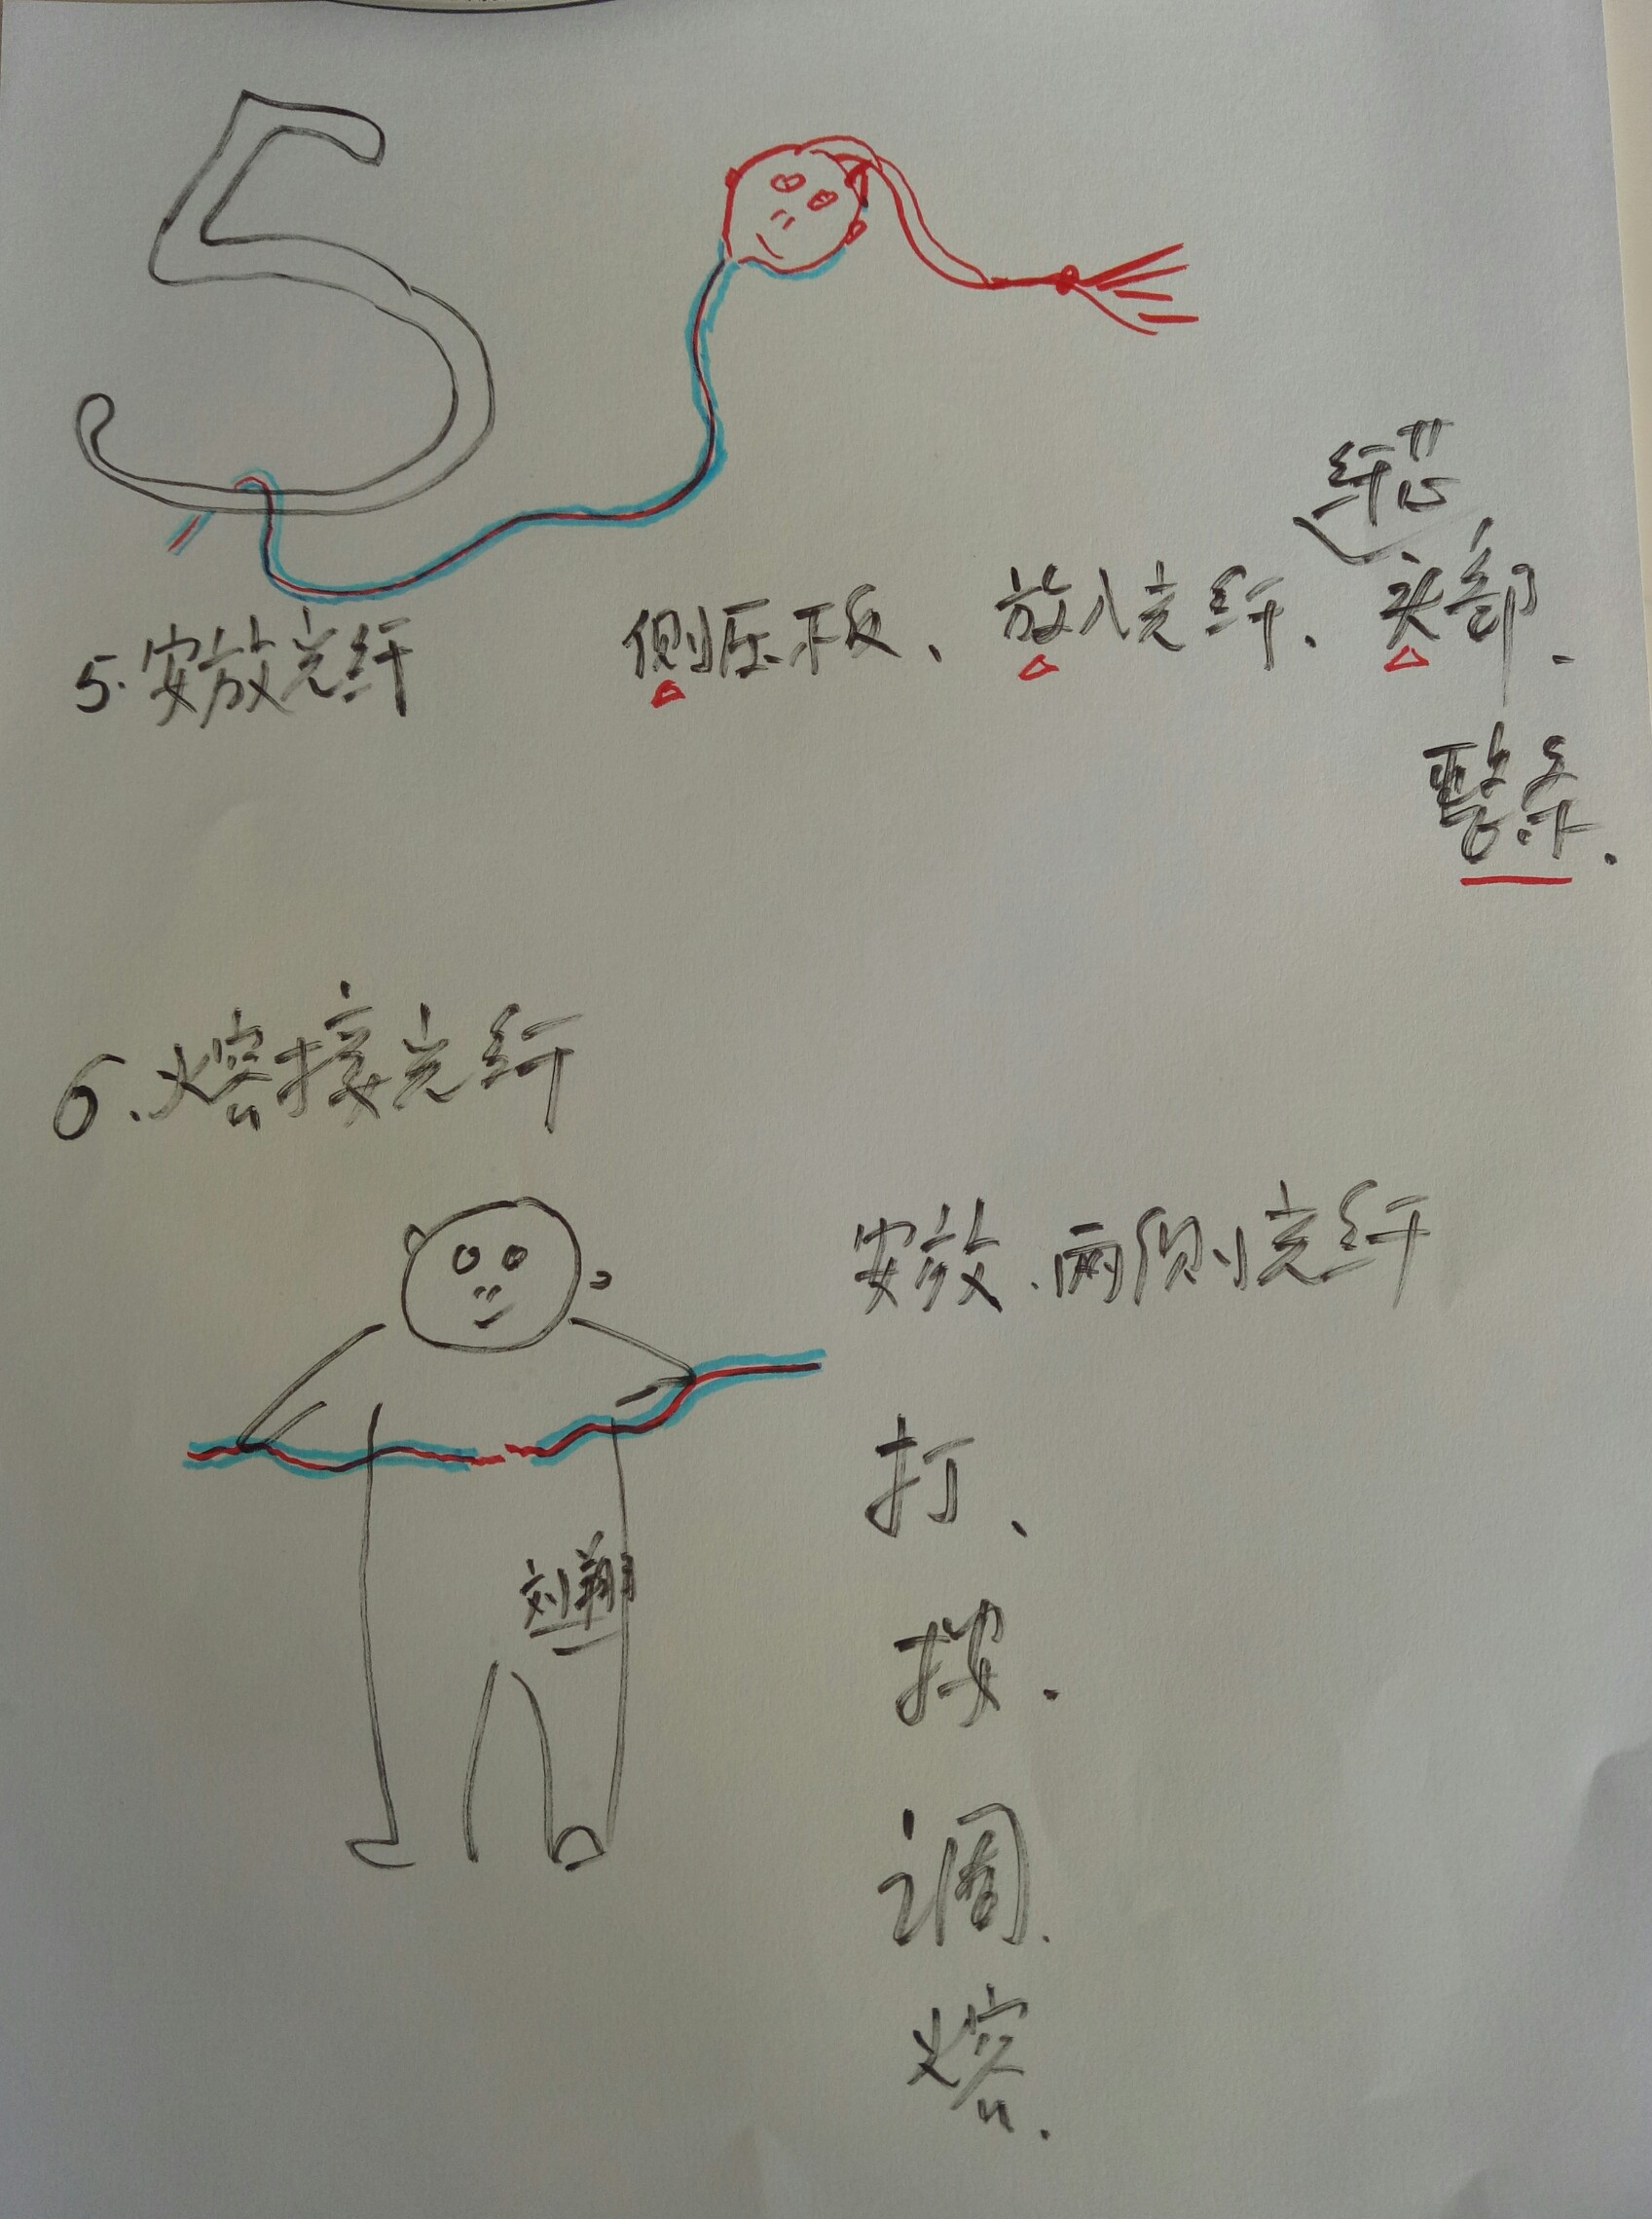 5
纤芯
5.安放光纤 侧压板、放入光纤、头部、
整条.
6.熔接光纤
安放、两侧光纤
打、
按.
刘翔
调.
熔.